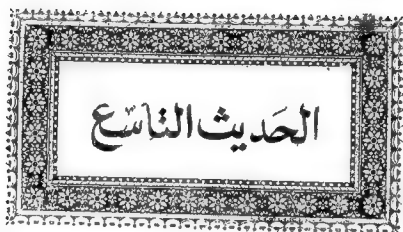 الحَديث التاسِع